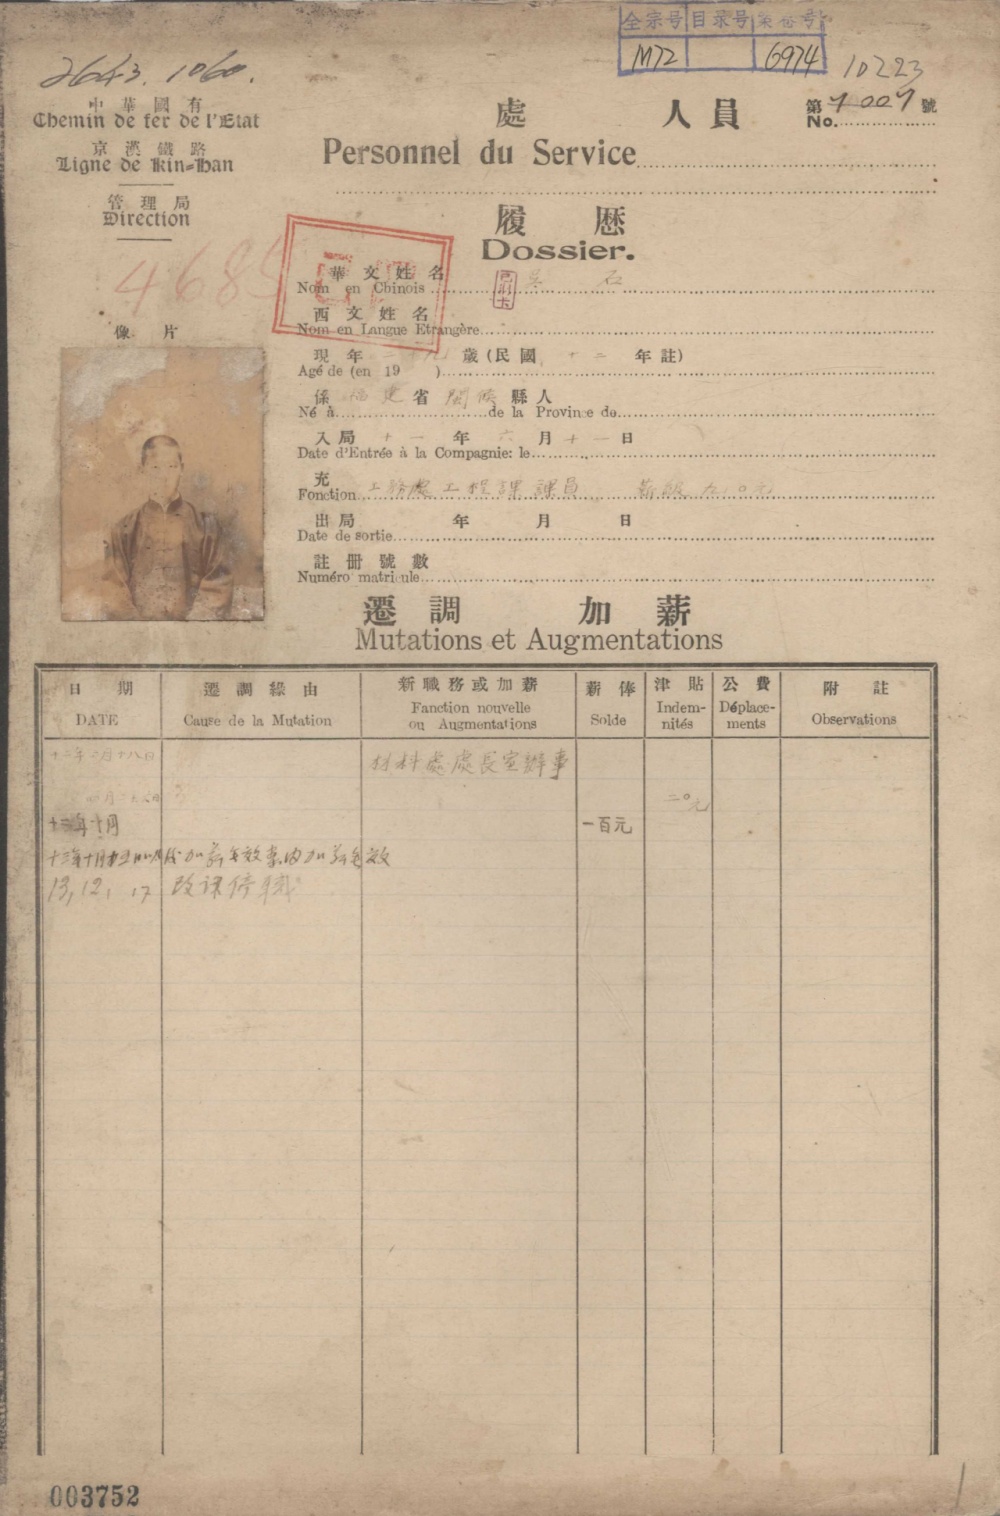 全宗号 目录号 案卷号
M72 6974
2643. 1060.
10223
中華國有
Chemin de fer de l'Etat
京漢鐵路
Ligne de Kin=Han
管理局
Direction
處 人員
Personnel du Service
第7007號
No.
履歷
Dossier.
4685
華文姓名 吳 石
Nom en Chinois
西文姓名
Nom en Langue Etrangère
像片
現年二十九歲(民國十二年註)
Agé de (en 19 )
係福建省閩侯縣人
Né à de la Province de
入局十一年六月十一日
Date d'Entrée à la Compagnie: le
充 工務處工程課課員 薪級九十元
Fonction
出局 年 月 日
Date de sortie
註冊號數
Numéro matricule
遷調 加薪
Mutations et Augmentations
日期 遷調緣由 新職務或加薪 薪俸 津貼 公費 附註
DATE Cause de la Mutation Fanction nouvelle ou Augmentations Solde Indem-nités Déplace-ments Observations
十二年二月十八日 材料處處長室辦事
二〇元
十二年十月 一百元
十三年十月 加薪無效
13, 12, 17 改課停職
003752